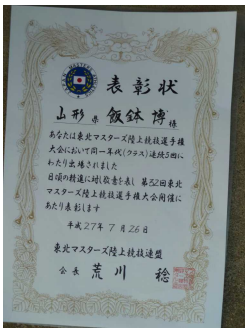 表彰状
山形県 飯鉢 博 様
あなたは東北マスターズ陸上競技選手権
大会において同一年代(クラス)連続5回に
わたり出場されました
日頃の精進に対し敬意を表し 第32回東北
マスターズ陸上競技選手権大会開催に
あたり表彰します
平成27年7月26日
東北マスターズ陸上競技連盟
会長 荒川 稔